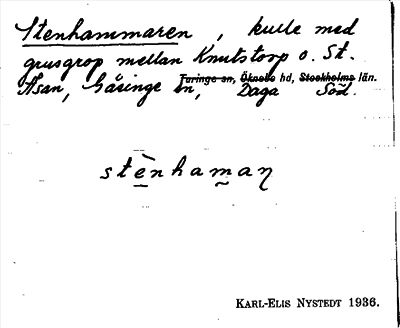 Stenhammaren, kulle med
grusgrop mellan Knutstorp o. St.
Turinge sn, Öknebo hd, Stockholms län.
Åsan, Gåsinge sn, Daga Söd.
stènhaman
KARL-ELIS NYSTEDT 1936.